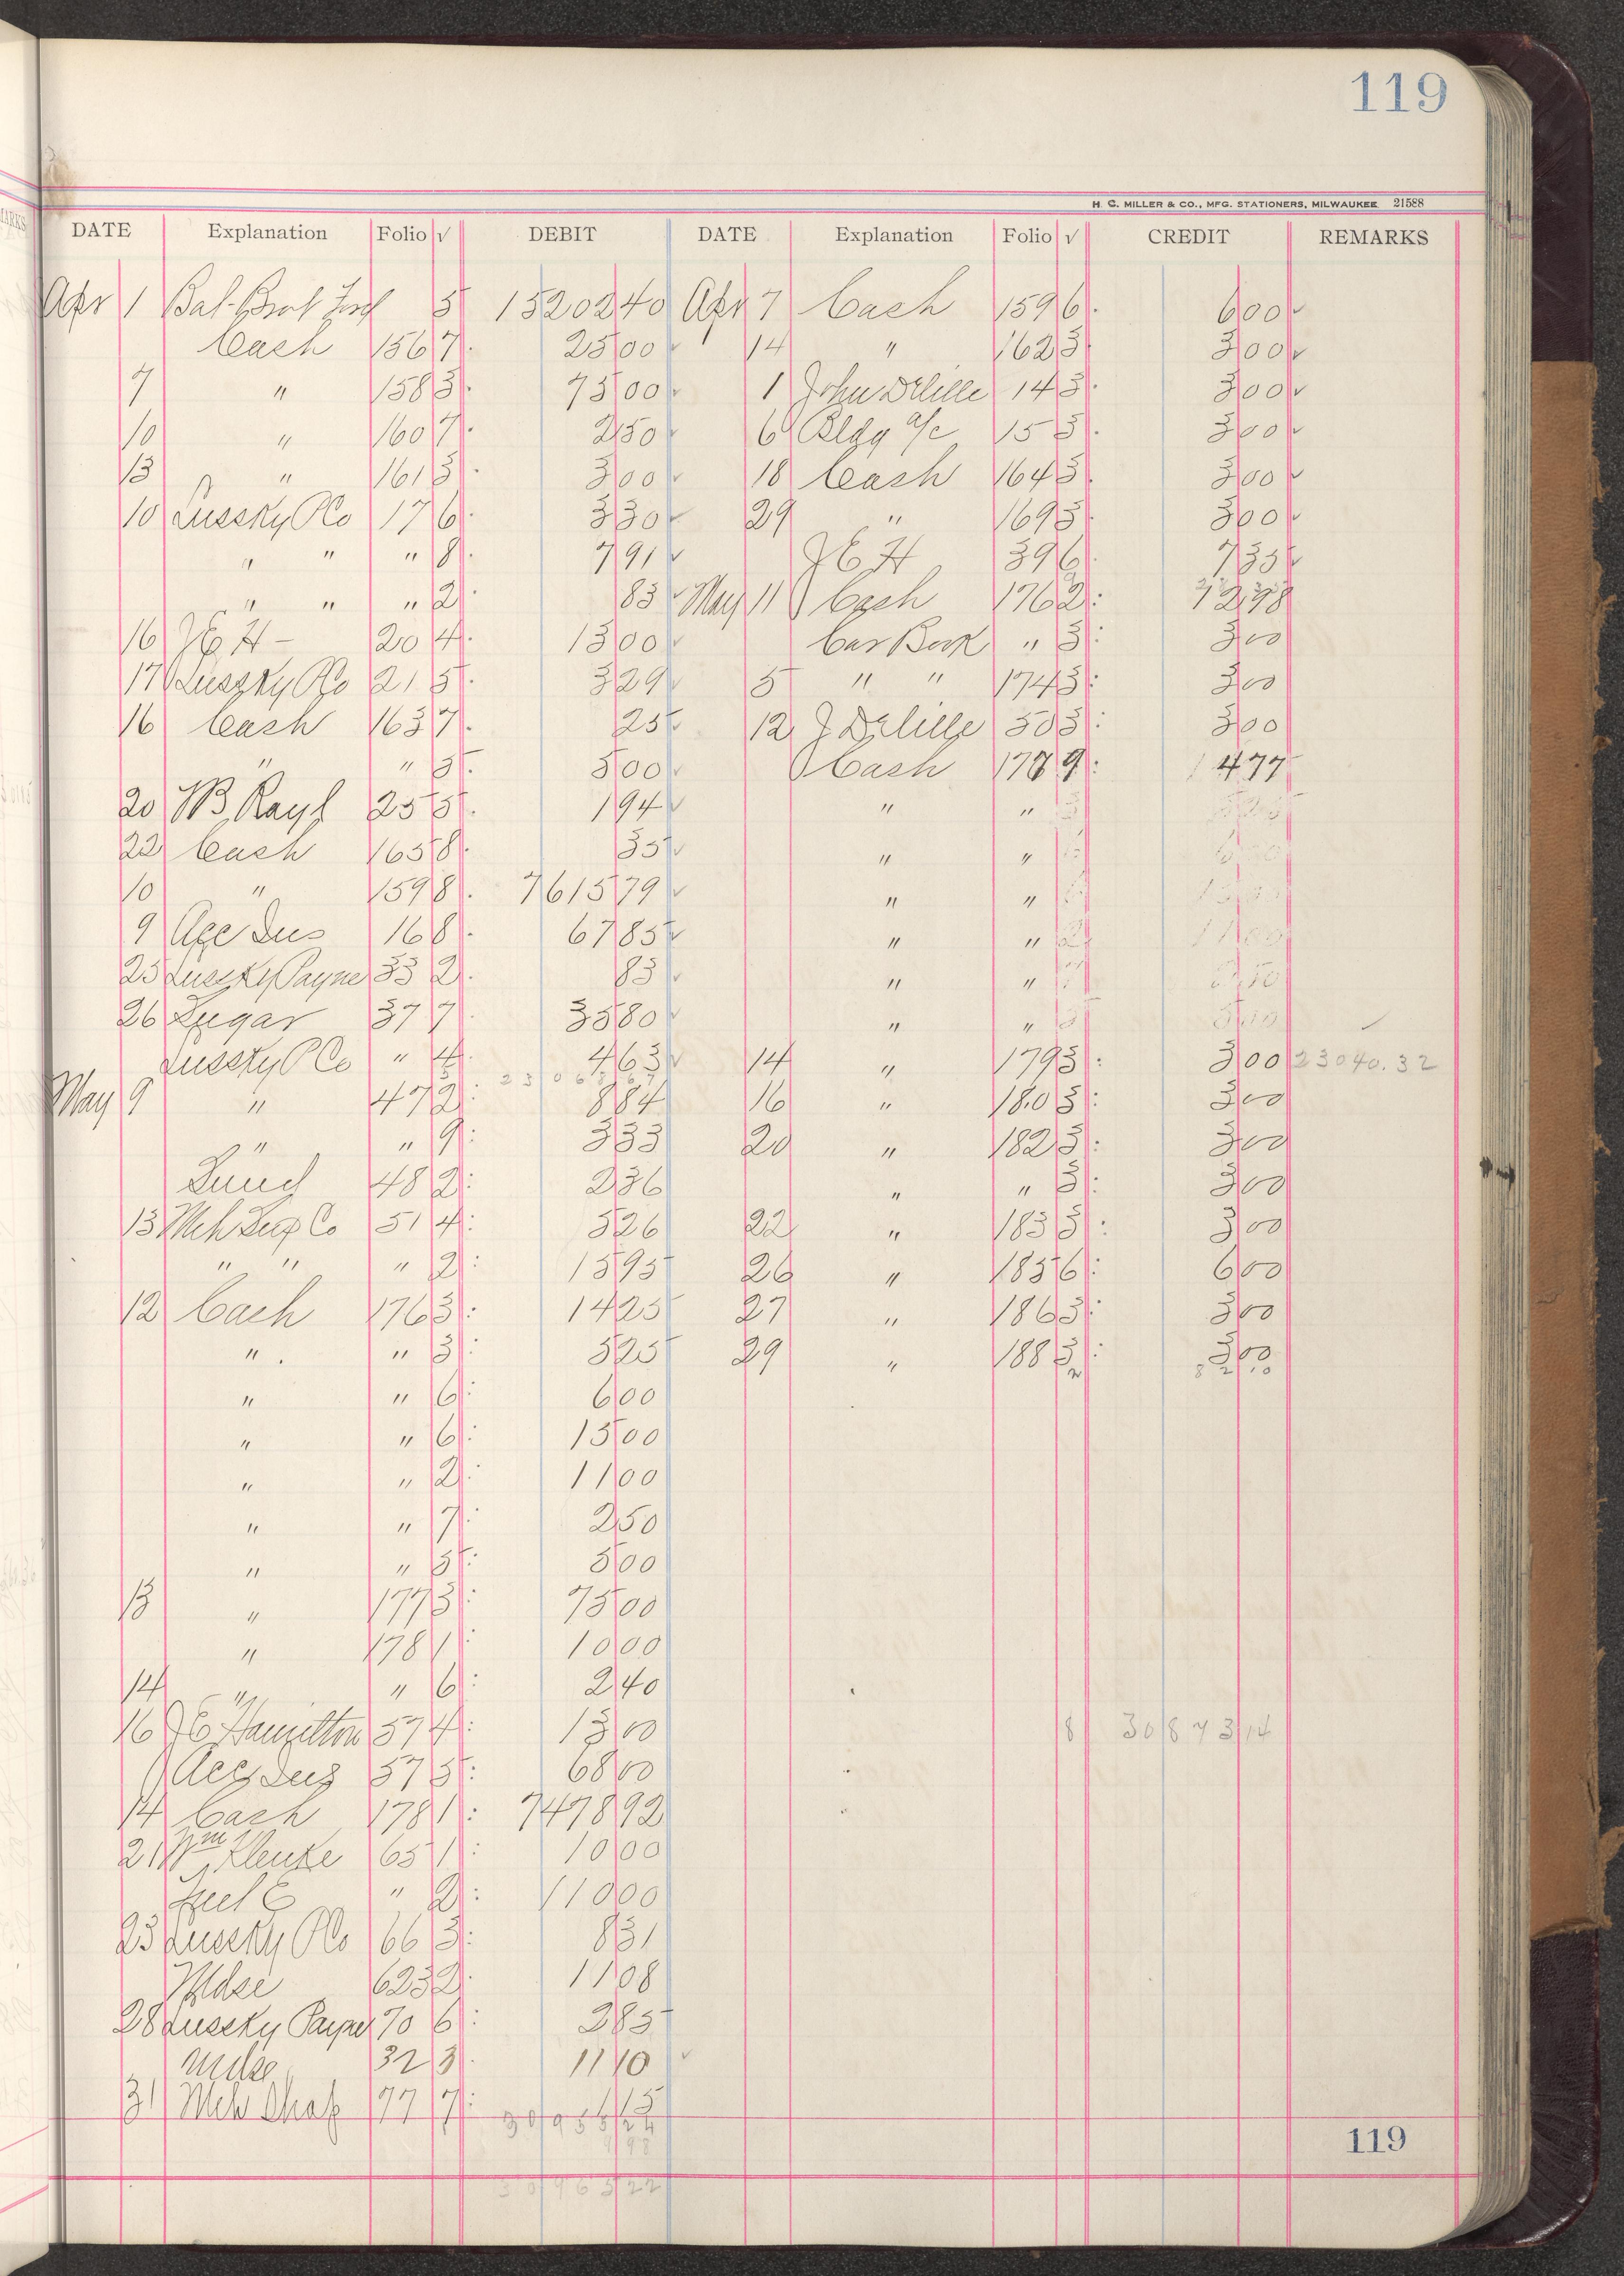 119
H. C. MILLER & CO., MFG. STATIONERS, MILWAUKEE 21588
DATE Explanation Folio √ DEBIT DATE Explanation Folio √ CREDIT REMARKS
Apr 1 5 1520240 Apr 7 Cash 159 6 600
Cash 156 7 2500 14 " 162 3 300
7 " 158 3 7500 1 John Delille 14 3 300
10 " 160 7 250 6 Bldg a/c 15 3 300
13 " 161 3 300 18 Cash 164 3 300
10 Lussky P Co 17 6 330 29 " 169 3 300
" " " 8 791 J E H 39 6 735
" " " 2 83 May 11 Cash 176 2
16 J E H - 20 4 1300 Car Book " 3 300
17 Lussky P Co 21 5 329 5 " " 174 3 300
16 Cash 163 7 25 12 J Delille 50 3 300
" " 5 500 Cash 177 9 477
20 25 5 194 " "
22 Cash 165 8 35 " "
10 " 159 8 761579 " "
9 Age Dus 16 8 6785 " "
25 Lussky Payne 35 2 83 " "
26 Sugar 37 7 3580 " "
Lussky P Co " 4 463 14 " 179 3 300 23040.32
May 9 " 47 2 884 16 " 180 3 300
" " 9 333 20 " 182 3 300
48 2 236 " " 3 300
13 Mch Sup Co 51 4 526 22 " 183 3 300
" " " 2 1595 26 " 185 6 600
12 Cash 176 3 1425 27 " 186 3 300
" " 3 525 29 " 188 3 300
" " 6 600
" " 6 1500
" " 2 1100
" " 7 250
" " 5 500
13 " 177 3 7500
" 178 1 1000
14 " " 6 240
16 J E Hamilton 57 4 1300 8 3087314
57 5 6800
14 Cash 178 1 747892
21 Wm Klenke 65 1 1000
" 2 11000
23 Lussky P Co 66 3 831
Mdse 623 2 1108
28 Lussky Payne 70 6 385
Mdse 32 3 1110
31 77 7
119
3096522